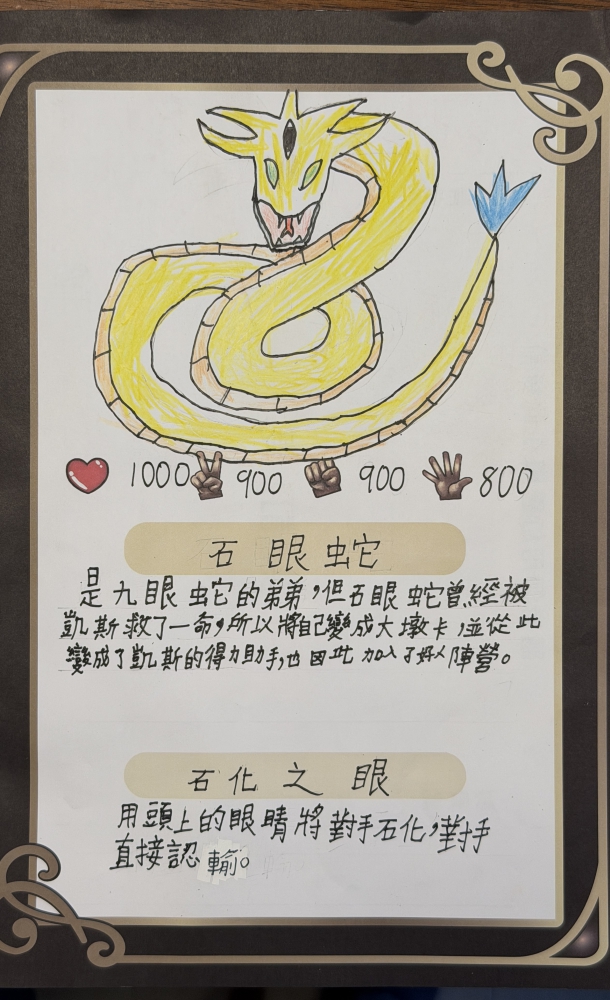 1000 900 900 800
石眼蛇
是九眼蛇的弟弟,但石眼蛇曾經被
凱斯救了一命,所以將自己變成大墩卡,並從此
變成了凱斯的得力助手,也因此加入了好人陣營。
石化之眼
用頭上的眼睛將對手石化,對手
直接認輸。